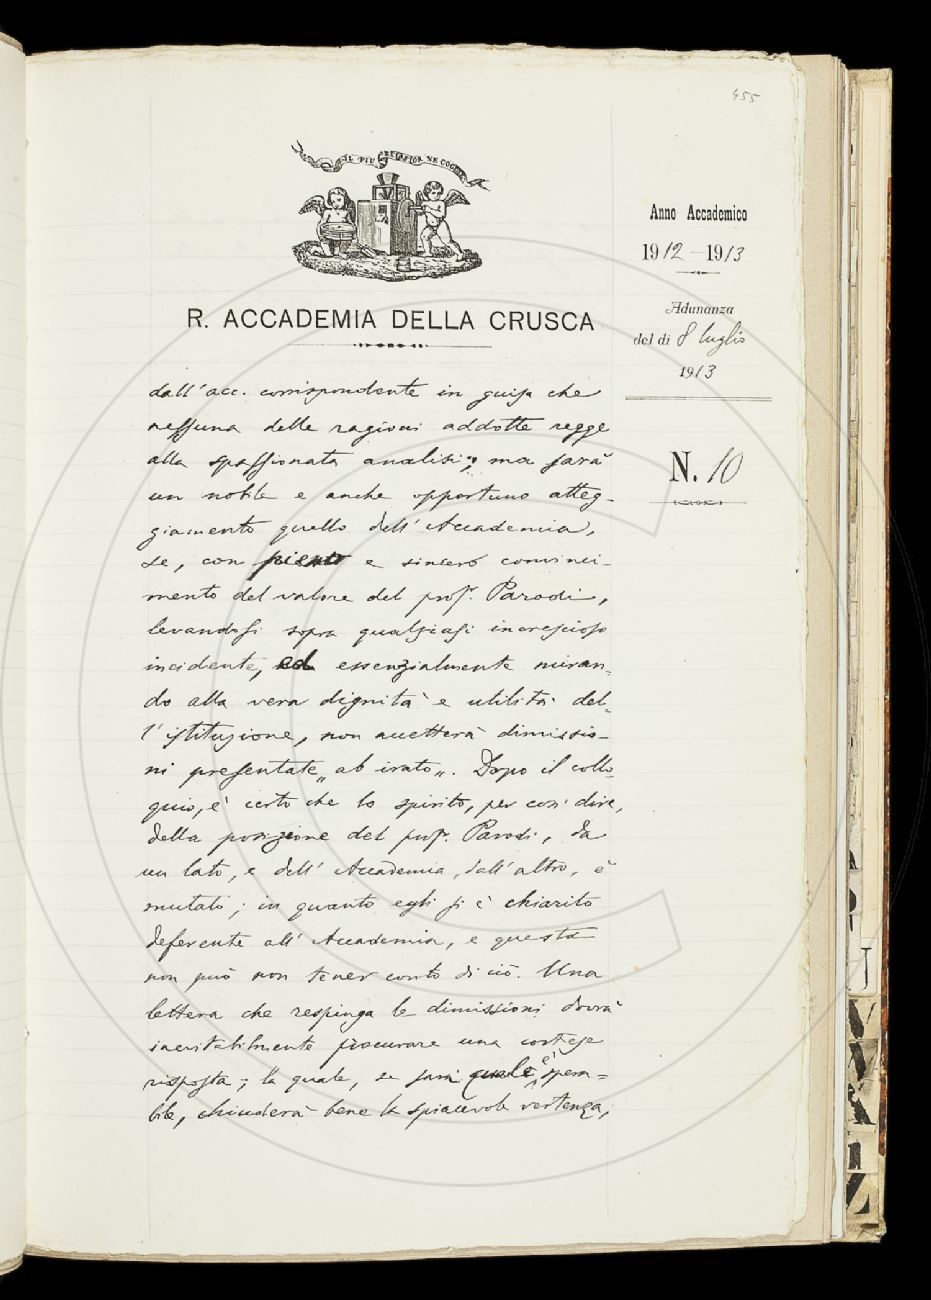 455
IL PIÙ BEL FIOR NE COGLIE
R. ACCADEMIA DELLA CRUSCA
Anno Accademico
1912-1913
Adunanza
del dì 8 luglio
1913
N. 10
dall'acc. corrispondente in guisa che
nessuna delle ragioni addotte regge
alla spassionata analisi; ma sarà
un nobile e anche opportuno atteg-
giamento quello dell'Accademia,
se, con pieno e sincero convinci-
mento del valore del prof. Parodi,
levandosi sopra qualsiasi increscioso
incidente, ed essenzialmente miran-
do alla vera dignità e utilità del-
l'istituzione, non accetterà dimissio-
ni presentate „ab irato„. Dopo il collo-
quio, è certo che lo spirito, per così dire,
della posizione del prof. Parodi, da
un lato, e dell'Accademia, dall'altro, è
mutato; in quanto egli si è chiarito
deferente all'Accademia, e questa
non può non tener conto di ciò. Una
lettera che respinga le dimissioni dovrà
inevitabilmente procurare una cortese
risposta; la quale, se sarà quale è spera-
bile, chiuderà bene la spiacevole vertenza,